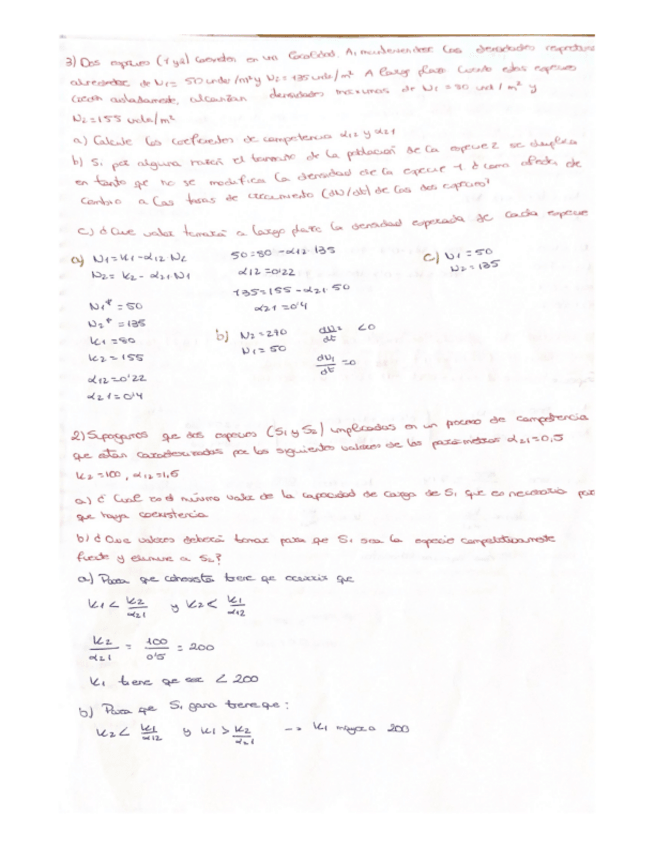 3) Dos especies (1 y 2) coexisten en una localidad, A, manteniendose las densidades respectivas
alrededor de N1= 50 unds/m² y N2= 135 unds/m² A largo plazo cuando estas especies
crecen aisladamente, alcanzan densidades máximas de N1 = 80 und / m² y
N2=155 unds/m²
a) Calcule los coeficientes de competencia α12 y α21
b) Si por alguna razón el tamaño de la población de la especie 2 se duplica
en tanto que no se modifica la densidad de la especie 1 ¿ cómo afecta ese
cambio a las tasas de crecimiento (dN/dt) de las dos especies?
c) ¿ Que valor tomará a largo plazo la densidad esperada de cada especie
a) N1=K1-α12 N2
N2= K2- α21 N1
N1* = 50
N2* = 135
K1 =80
K2 = 155
α12 =0'22
α21 = 0'4
50=80 -α12 135
α12 =0'22
135=155 -α21 50
α21 =0'4
b) N2=270
N1= 50
dN2/dt <0
dN1/dt =0
c) N1=50
N2=135
2) Supogamos que dos especies (S1 y S2) implicadas en un proceso de competencia
que están caracterizadas por los siguientes valores de los parámetros α21=0,5
K2=100, α12=1,5
a) ¿ Cual es el mínimo valor de la capacidad de carga de S1 que es necesario para
que haya coexistencia
b) ¿ Que valores deberá tomar para que S1 sea la especie competitivamente
fuerte y elimine a S2?
a) Para que cohexista tiene que ocurrir que
K1 < K2/α21 y K2 < K1/α12
K2/α21 = 100/0'5 = 200
K1 tiene que ser < 200
b) Para que S1 gana tiene que:
K2 < K1/α12 y K1 > K2/α21 -> K1 mayor a 200